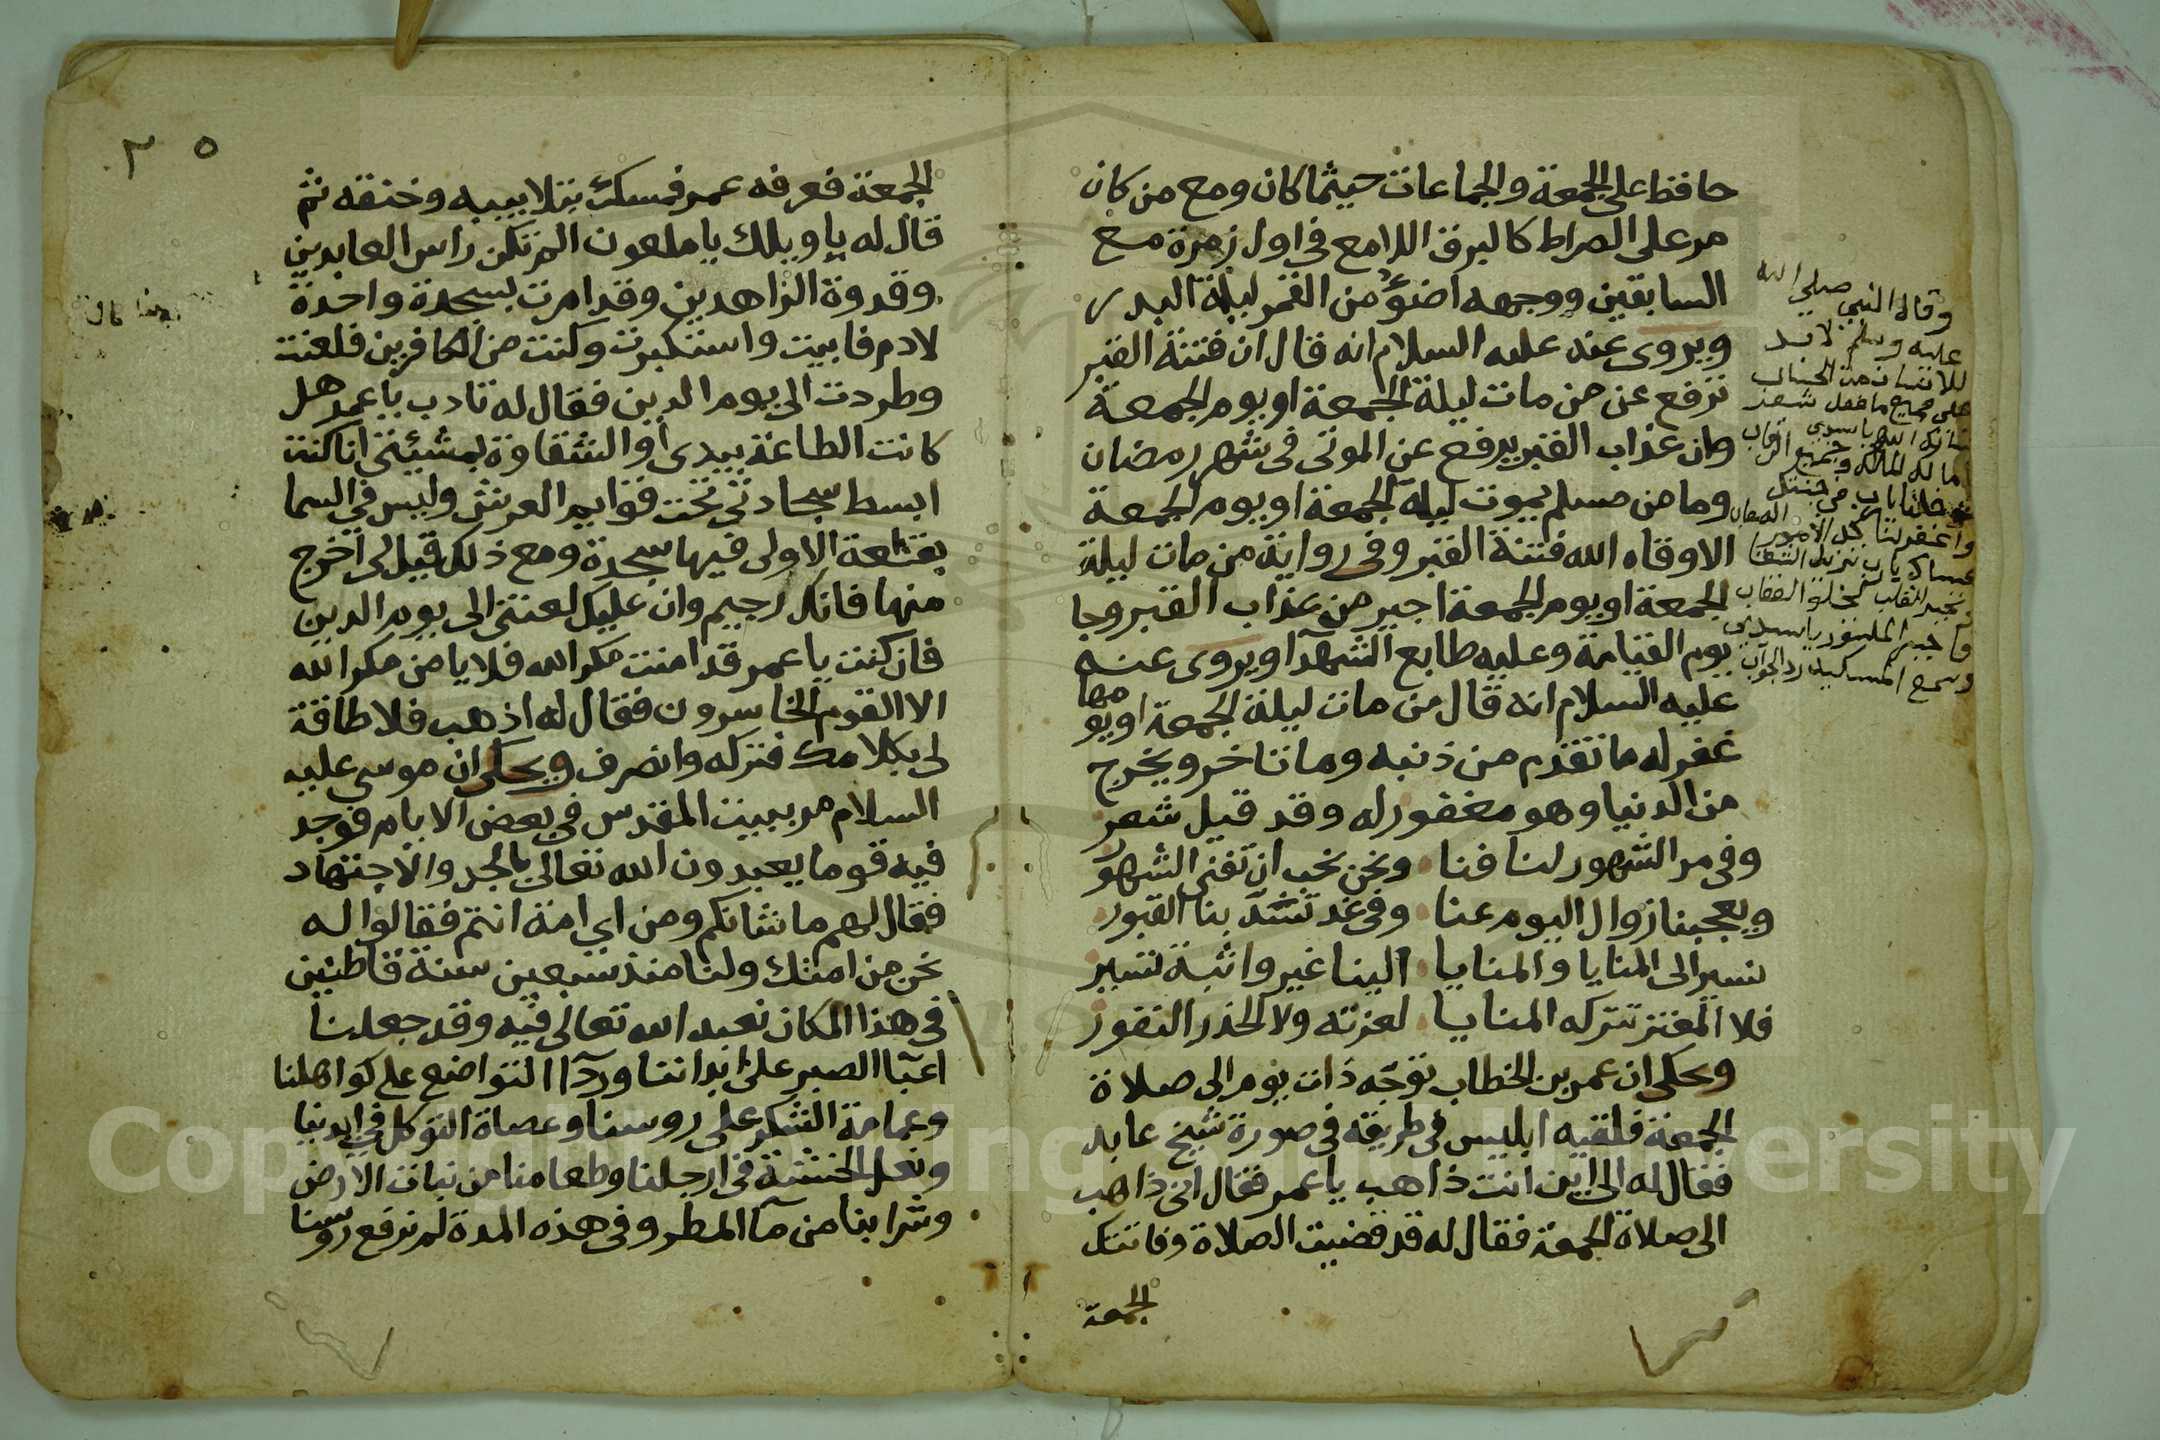 حافظ على الجمعة والجماعات حيثما كان ومع من كان
مر على الصراط كالبرق اللامع في اول زمرة مع
السابقين ووجهه اضوؤ من القمر ليلة البدر
ويروى عنه عليه السلام انه قال ان فتنة القبر
ترفع عن من مات ليلة الجمعة او يوم الجمعة
وان عذاب القبر يرفع عن الموتى في شهر رمضان
وما من مسلم يموت ليلة الجمعة او يوم الجمعة
الا وقاه الله فتنة القبر وفي رواية من مات ليلة
الجمعة او يوم الجمعة اجير من عذاب القبر وجا
يوم القيامة وعليه طابع الشهدآ ويروى عنه
عليه السلام انه قال من مات ليلة الجمعة او يومها
غفر له ما تقدم من ذنبه وما تاخر ويخرج
من الدنيا وهو مغفور له وقد قيل شعر
وفي مر الشهور لنا فنا ونحن نحب ان تفنى الشهور
ويعجبنا زوال اليوم عنا وفي غد تشد بنا القبور
نسير الى المنايا والمنايا الينا غير واثبة تسير
فلا المغتر تتركه المنايا لعزته ولا الحذر النفور
وحكى ان عمر بن الخطاب توجه ذات يوم الى صلاة
الجمعة فلقيه ابليس في طريقه في صورة شيخ عابد
فقال له الى اين انت ذاهب يا عمر فقال اني ذاهب
الى صلاة الجمعة فقال له قد قضيت الصلاة وفاتتك
الجمعة
وقال النبي صلى الله
عليه وسلم لا بد
للانسان من الحساب
على جميع ما فعل شعر
يا سيدي
وجميع
واغفر لنا كل الامور
يا سيدي
رد الجواب
٣٥
الجمعة فعرفه عمر فمسك بتلابيبه وخنقه ثم
قال له يا ويلك يا ملعون الم تكن راس العابدين
وقدوة الزاهدين وقد امرت بسجدة واحدة
لادم فابيت واستكبرت وكنت من الكافرين فلعنت
وطردت الى يوم الدين فقال له تادب يا عمر هل
كانت الطاعة بيدي او الشقاوة بمشيئتي انا كنت
ابسط سجادتي تحت قوايم العرش وليس في السما
بقعة الا ولى فيها سجدة ومع ذلك قيل لى اخرج
منها فانك رجيم وان عليك لعنتي الى يوم الدين
فان كنت يا عمر قد امنت مكر الله فلا يامن مكر الله
الا القوم الخاسرون فقال له اذهب فلا طاقة
لى بكلامك فتركه وانصرف ويحكى ان موسى عليه
السلام مر ببيت المقدس في بعض الايام فوجد
فيه قوما يعبدون الله تعالى بالجد والاجتهاد
فقال لهم ما شانكم ومن اي امة انتم فقالوا له
نحن من امتك ولنا منذ سبعين سنة قاطنين
في هذا المكان نعبد الله تعالى فيه وقد جعلنا
اعبآ الصبر على ابداننا وردآ التواضع على كواهلنا
وعمامة الشكر على روسنا وعصاة التوكل في ايدينا
ونعل الخشية في ارجلنا وطعامنا من نبات الارض
وشرابنا من مآ المطر وفي هذه المدة لم نرفع روسنا
Copyright © King Saud University